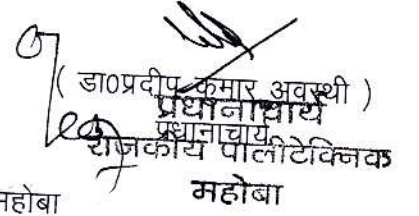 ( डा०प्रदीप कुमार अवस्थी )
प्रधानाचार्य
प्रधानाचार्य
राजकीय पालीटेक्निक
महोबा
महोबा